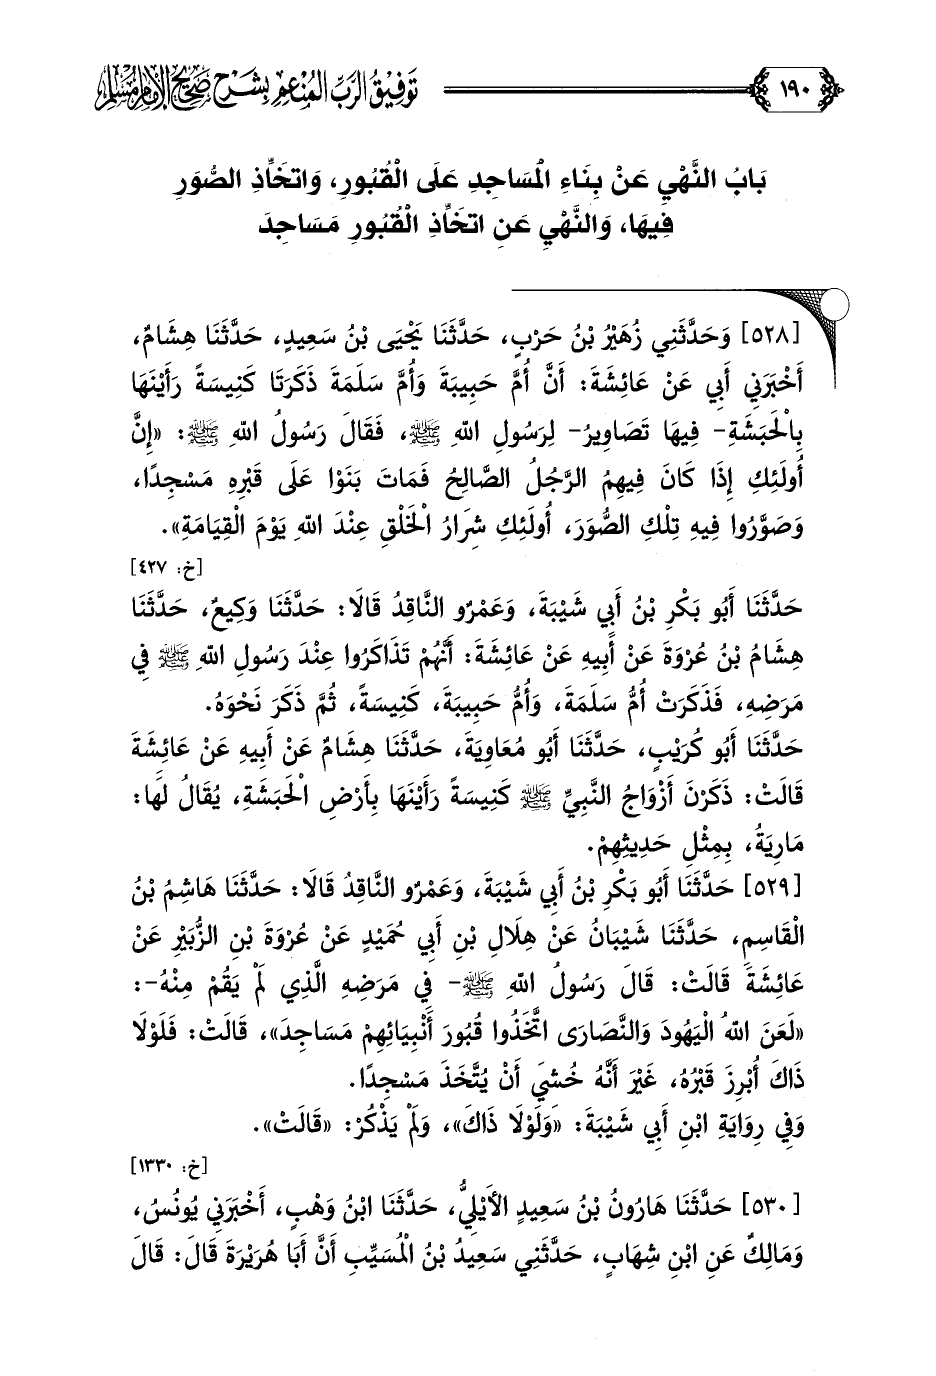 ١٩٠ توفيق الرب المنعم بشرح صحيح الإمام مسلم
بَابُ النَّهْيِ عَنْ بِنَاءِ الْمَسَاجِدِ عَلَى الْقُبُورِ، وَاتِّخَاذِ الصُّوَرِ
فِيهَا، وَالنَّهْيِ عَنِ اتِّخَاذِ الْقُبُورِ مَسَاجِدَ
[٥٢٨] وَحَدَّثَنِي زُهَيْرُ بْنُ حَرْبٍ، حَدَّثَنَا يَحْيَى بْنُ سَعِيدٍ، حَدَّثَنَا هِشَامٌ،
أَخْبَرَنِي أَبِي عَنْ عَائِشَةَ: أَنَّ أُمَّ حَبِيبَةَ وَأُمَّ سَلَمَةَ ذَكَرَتَا كَنِيسَةً رَأَيْنَهَا
بِالْحَبَشَةِ- فِيهَا تَصَاوِيرُ- لِرَسُولِ اللهِ ﷺ، فَقَالَ رَسُولُ اللهِ ﷺ: «إِنَّ
أُولَئِكِ إِذَا كَانَ فِيهِمُ الرَّجُلُ الصَّالِحُ فَمَاتَ بَنَوْا عَلَى قَبْرِهِ مَسْجِدًا،
وَصَوَّرُوا فِيهِ تِلْكِ الصُّوَرَ، أُولَئِكِ شِرَارُ الْخَلْقِ عِنْدَ اللهِ يَوْمَ الْقِيَامَةِ».
[خ: ٤٢٧]
حَدَّثَنَا أَبُو بَكْرِ بْنُ أَبِي شَيْبَةَ، وَعَمْرٌو النَّاقِدُ قَالَا: حَدَّثَنَا وَكِيعٌ، حَدَّثَنَا
هِشَامُ بْنُ عُرْوَةَ عَنْ أَبِيهِ عَنْ عَائِشَةَ: أَنَّهُمْ تَذَاكَرُوا عِنْدَ رَسُولِ اللهِ ﷺ فِي
مَرَضِهِ، فَذَكَرَتْ أُمُّ سَلَمَةَ، وَأُمُّ حَبِيبَةَ، كَنِيسَةً، ثُمَّ ذَكَرَ نَحْوَهُ.
حَدَّثَنَا أَبُو كُرَيْبٍ، حَدَّثَنَا أَبُو مُعَاوِيَةَ، حَدَّثَنَا هِشَامٌ عَنْ أَبِيهِ عَنْ عَائِشَةَ
قَالَتْ: ذَكَرْنَ أَزْوَاجُ النَّبِيِّ ﷺ كَنِيسَةً رَأَيْنَهَا بِأَرْضِ الْحَبَشَةِ، يُقَالُ لَهَا:
مَارِيَةُ، بِمِثْلِ حَدِيثِهِمْ.
[٥٢٩] حَدَّثَنَا أَبُو بَكْرِ بْنُ أَبِي شَيْبَةَ، وَعَمْرٌو النَّاقِدُ قَالَا: حَدَّثَنَا هَاشِمُ بْنُ
الْقَاسِمِ، حَدَّثَنَا شَيْبَانُ عَنْ هِلَالِ بْنِ أَبِي حُمَيْدٍ عَنْ عُرْوَةَ بْنِ الزُّبَيْرِ عَنْ
عَائِشَةَ قَالَتْ: قَالَ رَسُولُ اللهِ ﷺ- فِي مَرَضِهِ الَّذِي لَمْ يَقُمْ مِنْهُ-:
«لَعَنَ اللهُ الْيَهُودَ وَالنَّصَارَى اتَّخَذُوا قُبُورَ أَنْبِيَائِهِمْ مَسَاجِدَ»، قَالَتْ: فَلَوْلَا
ذَاكَ أُبْرِزَ قَبْرُهُ، غَيْرَ أَنَّهُ خُشِيَ أَنْ يُتَّخَذَ مَسْجِدًا.
وَفِي رِوَايَةِ ابْنِ أَبِي شَيْبَةَ: «وَلَوْلَا ذَاكَ»، وَلَمْ يَذْكُرْ: «قَالَتْ».
[خ: ١٣٣٠]
[٥٣٠] حَدَّثَنَا هَارُونُ بْنُ سَعِيدٍ الأَيْلِيُّ، حَدَّثَنَا ابْنُ وَهْبٍ، أَخْبَرَنِي يُونُسُ،
وَمَالِكٌ عَنِ ابْنِ شِهَابٍ، حَدَّثَنِي سَعِيدُ بْنُ الْمُسَيِّبِ أَنَّ أَبَا هُرَيْرَةَ قَالَ: قَالَ